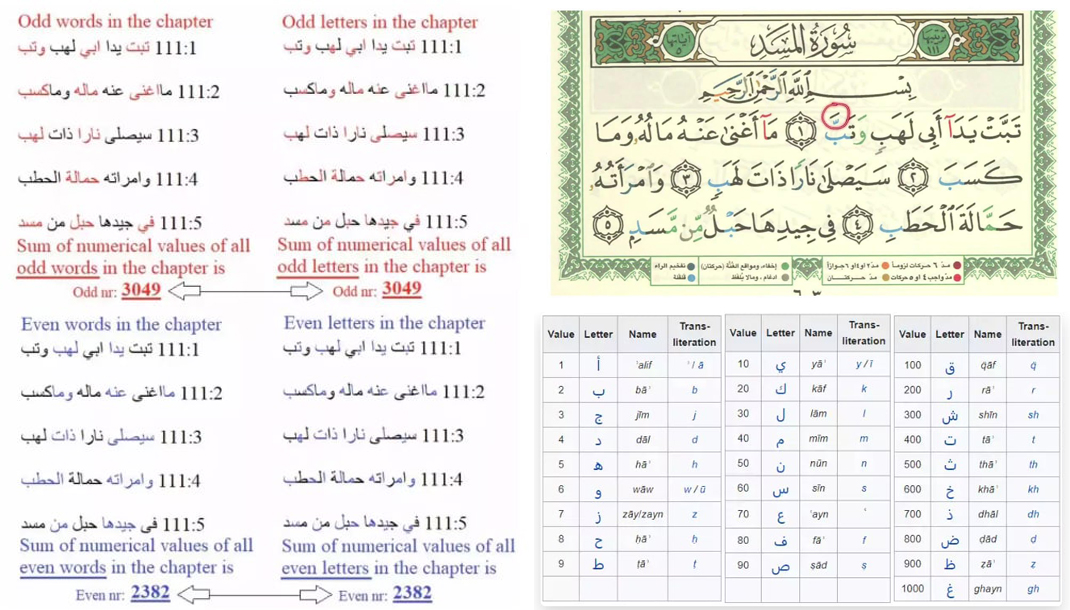 Odd words in the chapter
111:1 تبت يدا ابي لهب وتب
111:2 مااغنى عنه ماله وماكسب
111:3 سيصلى نارا ذات لهب
111:4 وامراته حمالة الحطب
111:5 في جيدها حبل من مسد
Sum of numerical values of all
odd words in the chapter is
Odd nr: 3049
Odd letters in the chapter
111:1 تبت يدا ابي لهب وتب
111:2 مااغنى عنه ماله وماكسب
111:3 سيصلى نارا ذات لهب
111:4 وامراته حمالة الحطب
111:5 في جيدها حبل من مسد
Sum of numerical values of all
odd letters in the chapter is
Odd nr: 3049
Even words in the chapter
111:1 تبت يدا ابي لهب وتب
111:2 مااغنى عنه ماله وماكسب
111:3 سيصلى نارا ذات لهب
111:4 وامراته حمالة الحطب
111:5 في جيدها حبل من مسد
Sum of numerical values of all
even words in the chapter is
Even nr: 2382
Even letters in the chapter
111:1 تبت يدا ابي لهب وتب
111:2 مااغنى عنه ماله وماكسب
111:3 سيصلى نارا ذات لهب
111:4 وامراته حمالة الحطب
111:5 في جيدها حبل من مسد
Sum of numerical values of all
even letters in the chapter is
Even nr: 2382
ترتيبها ١١١ سُورَةُ المَسَد آياتها ٥
بِسْمِ اللَّهِ الرَّحْمَٰنِ الرَّحِيمِ
تَبَّتْ يَدَآ أَبِى لَهَبٍ وَتَبَّ ١ مَآ أَغْنَىٰ عَنْهُ مَالُهُۥ وَمَا
كَسَبَ ٢ سَيَصْلَىٰ نَارًا ذَاتَ لَهَبٍ ٣ وَٱمْرَأَتُهُۥ
حَمَّالَةَ ٱلْحَطَبِ ٤ فِى جِيدِهَا حَبْلٌ مِّن مَّسَدٍ ٥
مدّ ٦ حركات لزوماً مدّ ٢ او ٤ او ٦ جوازاً إخفاء، ومواقع الغُنَّة (حركتان) تفخيم الراء
مدّ واجب ٤ او ٥ حركات مدّ حركتان ادغام، ومالا يُلفَظ قلقلة
٦٠٣
Value Letter Name Trans-literation Value Letter Name Trans-literation Value Letter Name Trans-literation
1 أ ʾalif ʾ / ā 10 ي yāʾ y / ī 100 ق qāf q
2 ب bāʾ b 20 ك kāf k 200 ر rāʾ r
3 ج jīm j 30 ل lām l 300 ش shīn sh
4 د dāl d 40 م mīm m 400 ت tāʾ t
5 ه hāʾ h 50 ن nūn n 500 ث thāʾ th
6 و wāw w / ū 60 س sīn s 600 خ khāʾ kh
7 ز zāy/zayn z 70 ع ʿayn ʿ 700 ذ dhāl dh
8 ح ḥāʾ ḥ 80 ف fāʾ f 800 ض ḍād ḍ
9 ط ṭāʾ ṭ 90 ص ṣād ṣ 900 ظ ẓāʾ ẓ
1000 غ ghayn gh